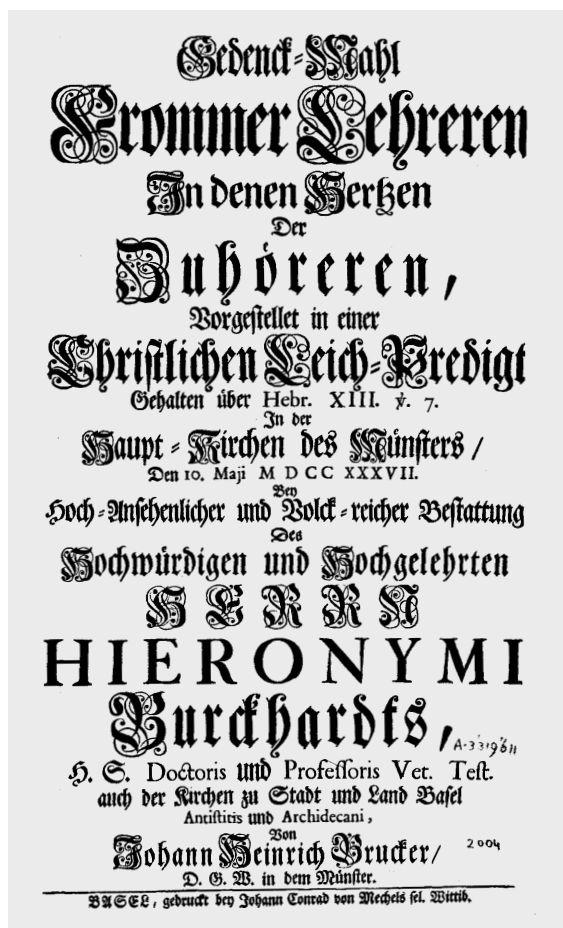 Gedenck-Mahl
Frommer Lehreren
In denen Hertzen
Der
Zuhöreren,
Vorgestellet in einer
Christlichen Leich-Predigt
Gehalten über Hebr. XIII. ℣. 7.
In der
Haupt-Kirchen des Münsters /
Den 10. Maji M D CC XXXVII.
Bey
Hoch-Ansehenlicher und Volck-reicher Bestattung
Des
Hochwürdigen und Hochgelehrten
HERRN
HIERONYMI
Burckhardts,
H. S. Doctoris und Professoris Vet. Test.
auch der Kirchen zu Stadt und Land Basel
Antistitis und Archidecani,
Von
Johann Heinrich Brucker/
2004
D. G. W. in dem Münster.
BASEL, gedruckt bey Johann Conrad von Mechels sel. Wittib.